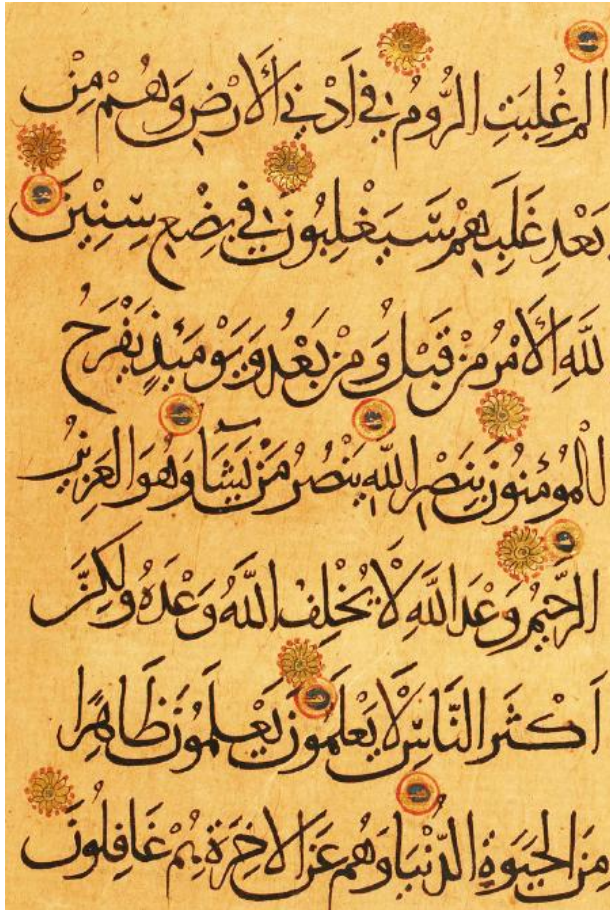 الم غُلِبَتِ الرُّومُ فِي اَدْنَي الْاَرْضِ وَهُمْ مِنْ
بَعْدِ غَلَبِهِمْ سَيَغْلِبُونَ فِي بِضْعِ سِنِينَ
لِلّٰهِ الْاَمْرُ مِنْ قَبْلُ وَمِنْ بَعْدُ وَيَوْمَئِذٍ يَفْرَحُ
الْمُؤْمِنُونَ بِنَصْرِ اللّٰهِ يَنْصُرُ مَنْ يَشَآ وَهُوَ الْعَزِيزُ
الرَّحِيمُ وَعْدَ اللّٰهِ لَا يُخْلِفُ اللّٰهُ وَعْدَهُ وَلٰكِنَّ
اَكْثَرَ النَّاسِ لَا يَعْلَمُونَ يَعْلَمُونَ ظَاهِرًا
مِنَ الْحَيٰوةِ الدُّنْيَا وَهُمْ عَنِ الْاخِرَةِ هُمْ غَافِلُونَ